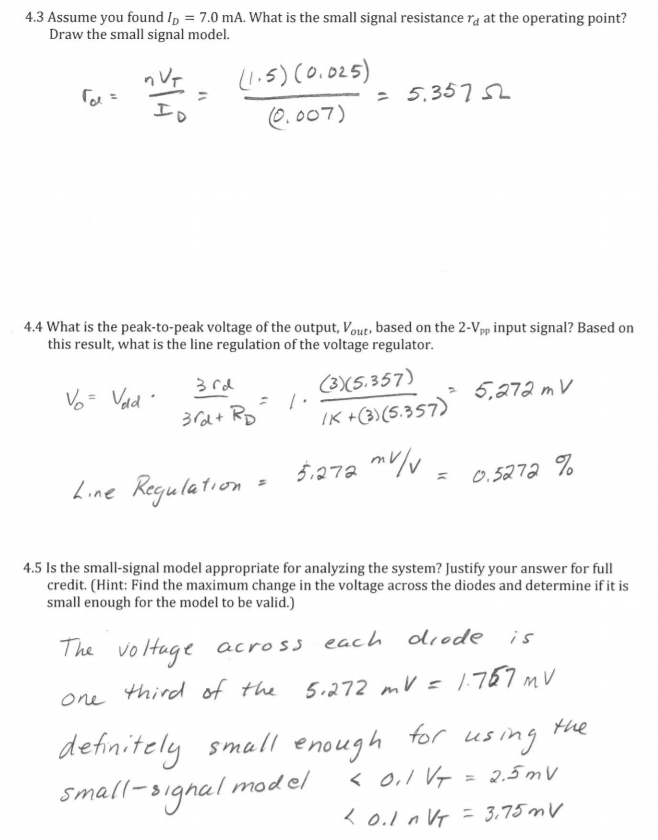 4.3 Assume you found I_D = 7.0 mA. What is the small signal resistance r_d at the operating point?
Draw the small signal model.
r_d = nV_T / I_D = (1.5)(0.025) / (0.007) = 5.357 Ω
4.4 What is the peak-to-peak voltage of the output, V_out, based on the 2-V_pp input signal? Based on
this result, what is the line regulation of the voltage regulator.
V_o = V_dd · 3r_d / 3r_d + R_D = 1 · (3)(5.357) / 1K + (3)(5.357) = 5,272 mV
Line Regulation = 5.272 mV/V = 0.5272 %
4.5 Is the small-signal model appropriate for analyzing the system? Justify your answer for full
credit. (Hint: Find the maximum change in the voltage across the diodes and determine if it is
small enough for the model to be valid.)
The voltage across each diode is
one third of the 5.272 mV = 1.757 mV
definitely small enough for using the
small-signal model < 0.1 V_T = 2.5mV
< 0.1 n V_T = 3.75mV